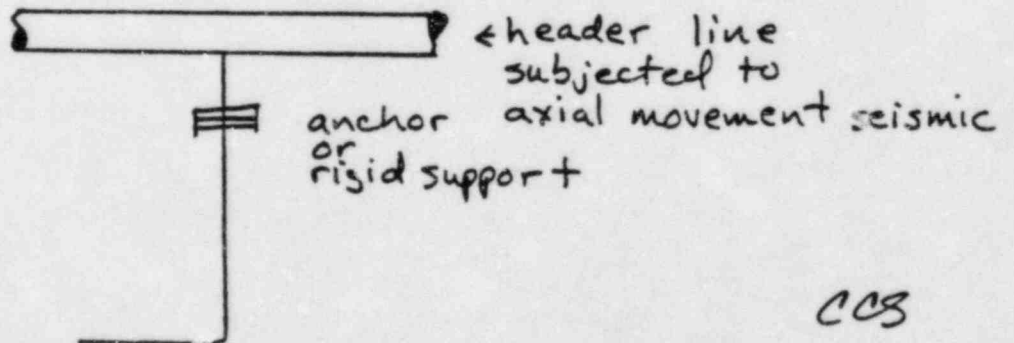 ←header line
subjected to
axial movement seismic
anchor
or
rigid support
CCS